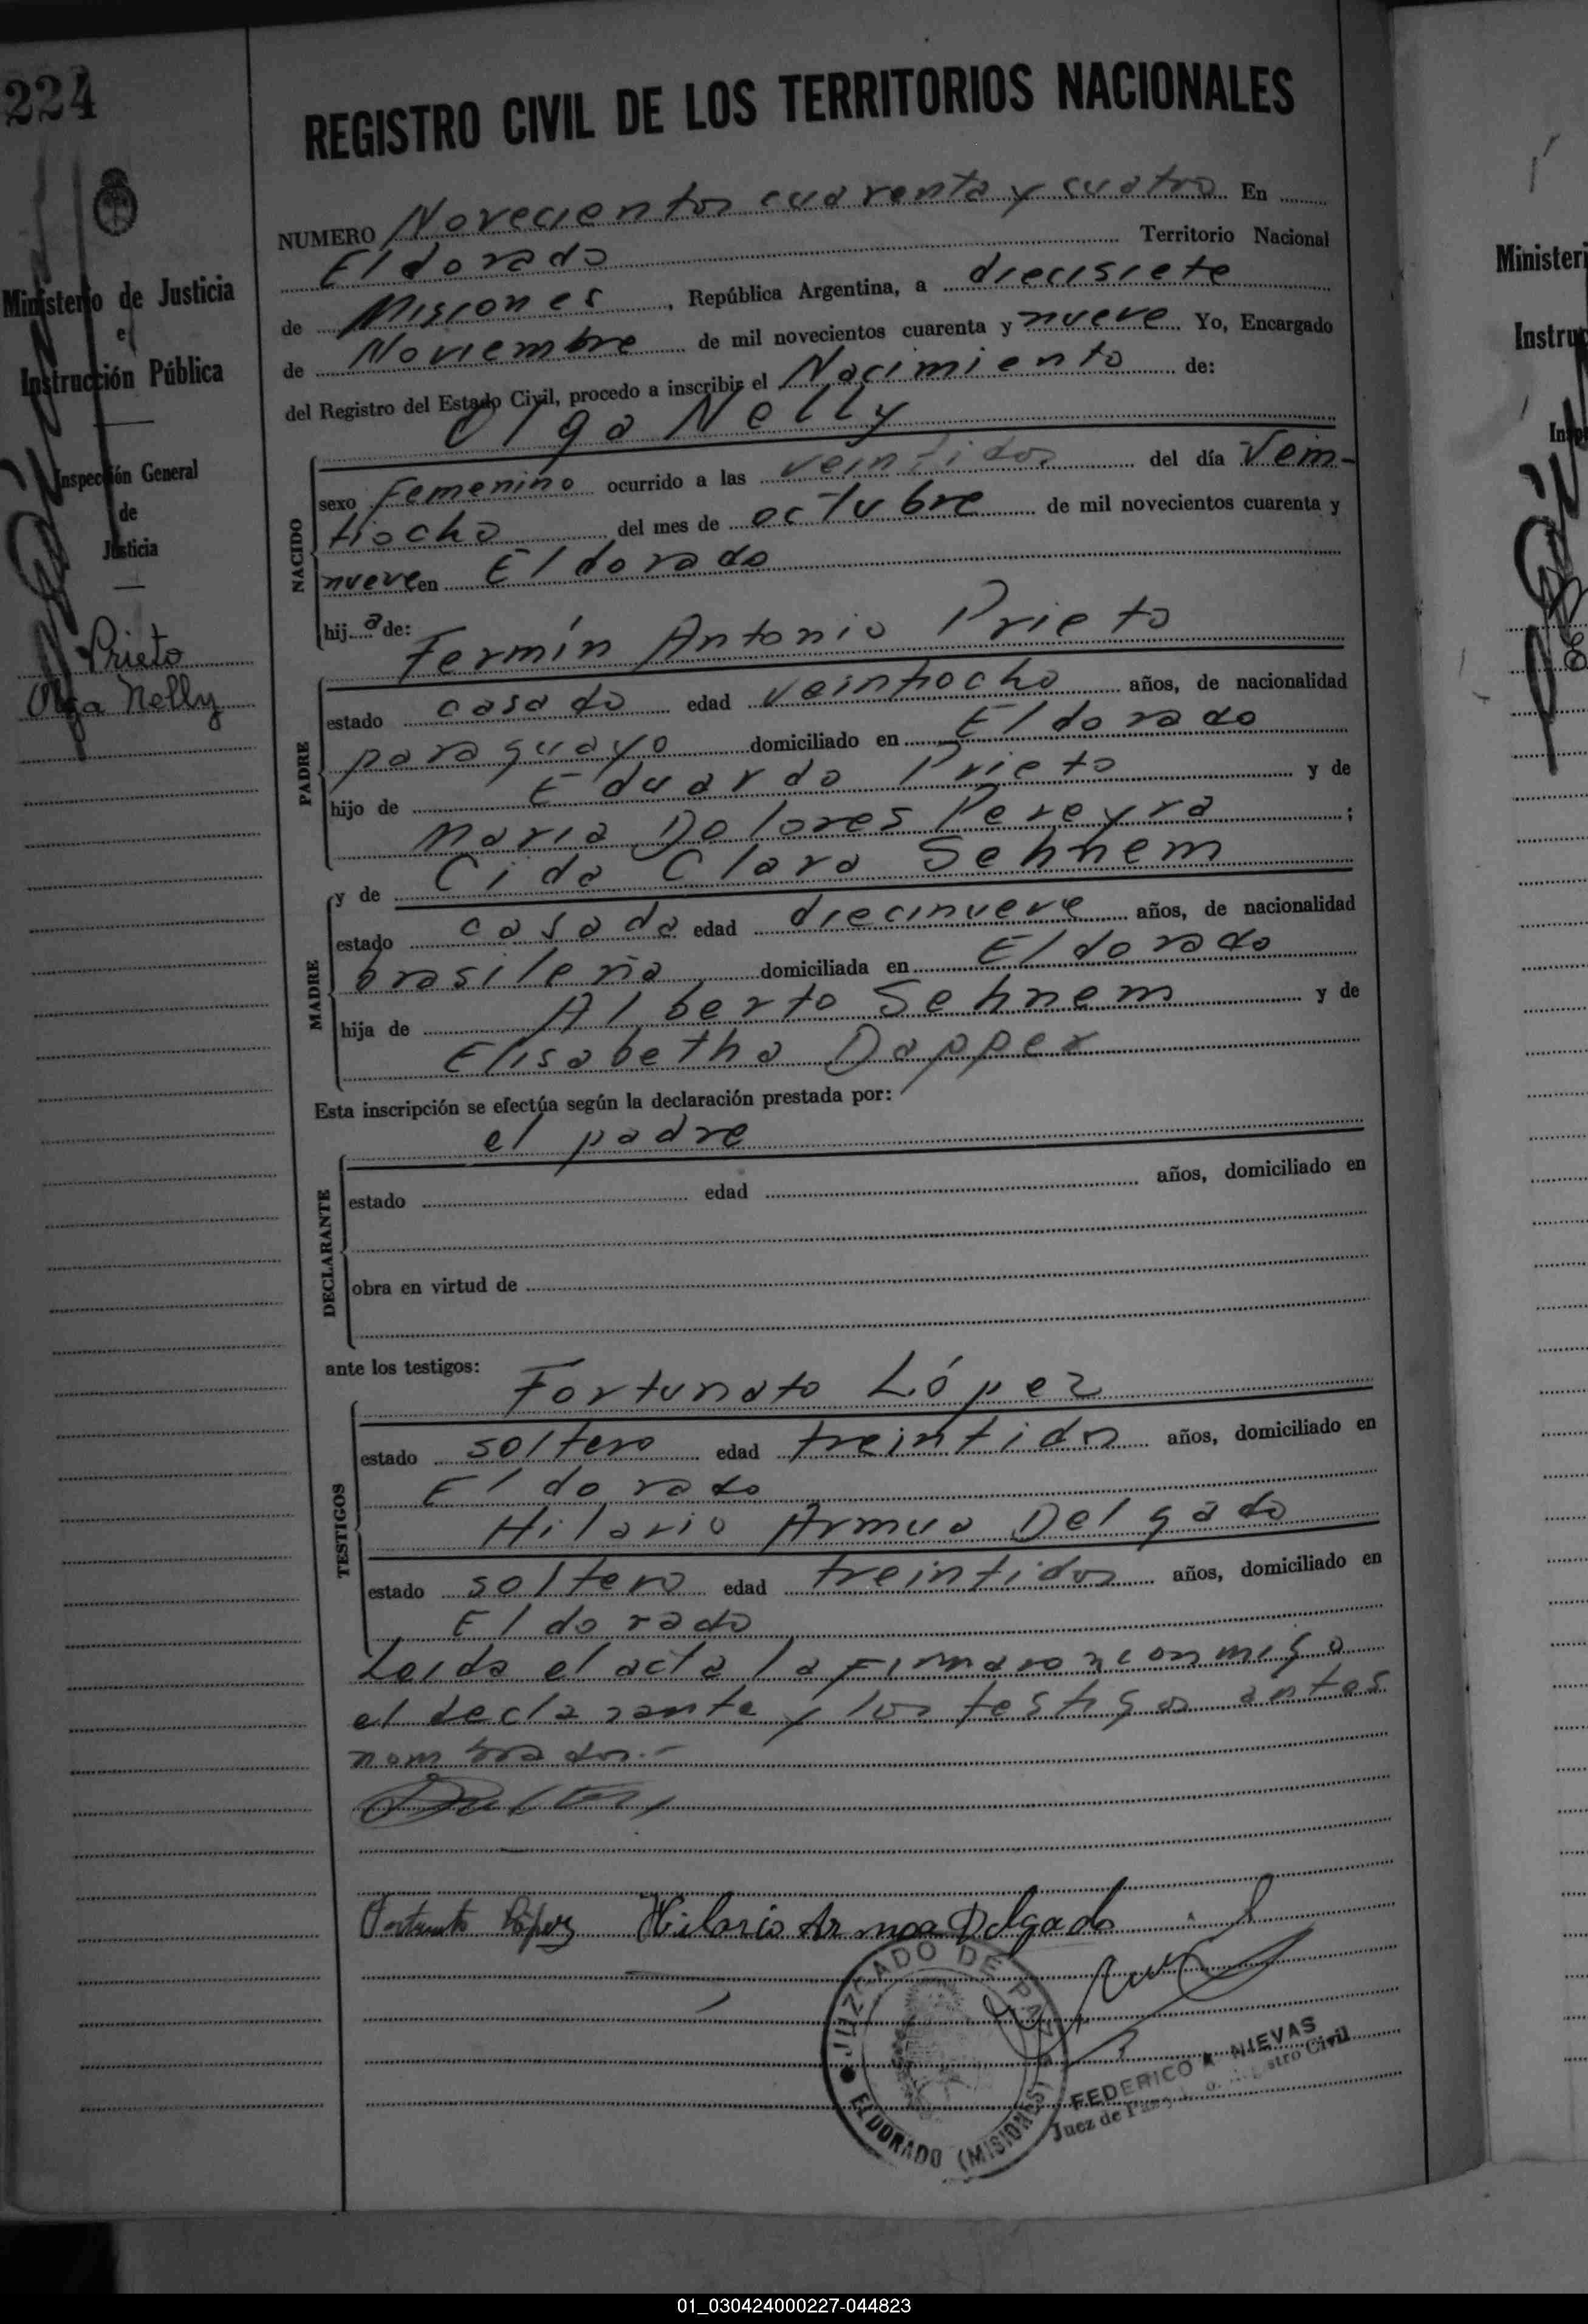 224
REGISTRO CIVIL DE LOS TERRITORIOS NACIONALES
Ministerio de Justicia
e
Instrucción Pública
Inspección General
de
Justicia
Prieto
Olga Nelly
NUMERO Novecientos cuarenta y cuatro En
Eldorado Territorio Nacional
de Misiones, República Argentina, a diecisiete
de Noviembre de mil novecientos cuarenta y nueve Yo, Encargado
del Registro del Estado Civil, procedo a inscribir el Nacimiento de:
Olga Nelly
NACIDO
sexo Femenino ocurrido a las veintidos del día Vein-
tiocho del mes de octubre de mil novecientos cuarenta y
nueve en Eldorado
hija de:
Fermín Antonio Prieto
PADRE
estado casado edad veintiocho años, de nacionalidad
paraguayo domiciliado en Eldorado
hijo de Eduardo Prieto y de
Maria Dolores Pereyra ;
y de Cida Clara Sehnem
MADRE
estado casada edad diecinueve años, de nacionalidad
brasileña domiciliada en Eldorado
hija de Alberto Sehnem y de
Elisabetha Dapper
Esta inscripción se efectúa según la declaración prestada por:
el padre
DECLARANTE
estado edad años, domiciliado en
obra en virtud de
ante los testigos:
Fortunato López
TESTIGOS
estado soltero edad treintidos años, domiciliado en
Eldorado
Hilario Armua Delgado
estado soltero edad treintidos años, domiciliado en
Eldorado
Leida el acta la firmaron conmigo
el declarante y los testigos antes
nombrados.-
Fortunato López Hilario Armoa Delgado
JUZGADO DE PAZ
ELDORADO (MISIONES)
FEDERICO A. NIEVAS
Juez de Paz Registro Civil
Ministeri
Instruc
01_030424000227-044823